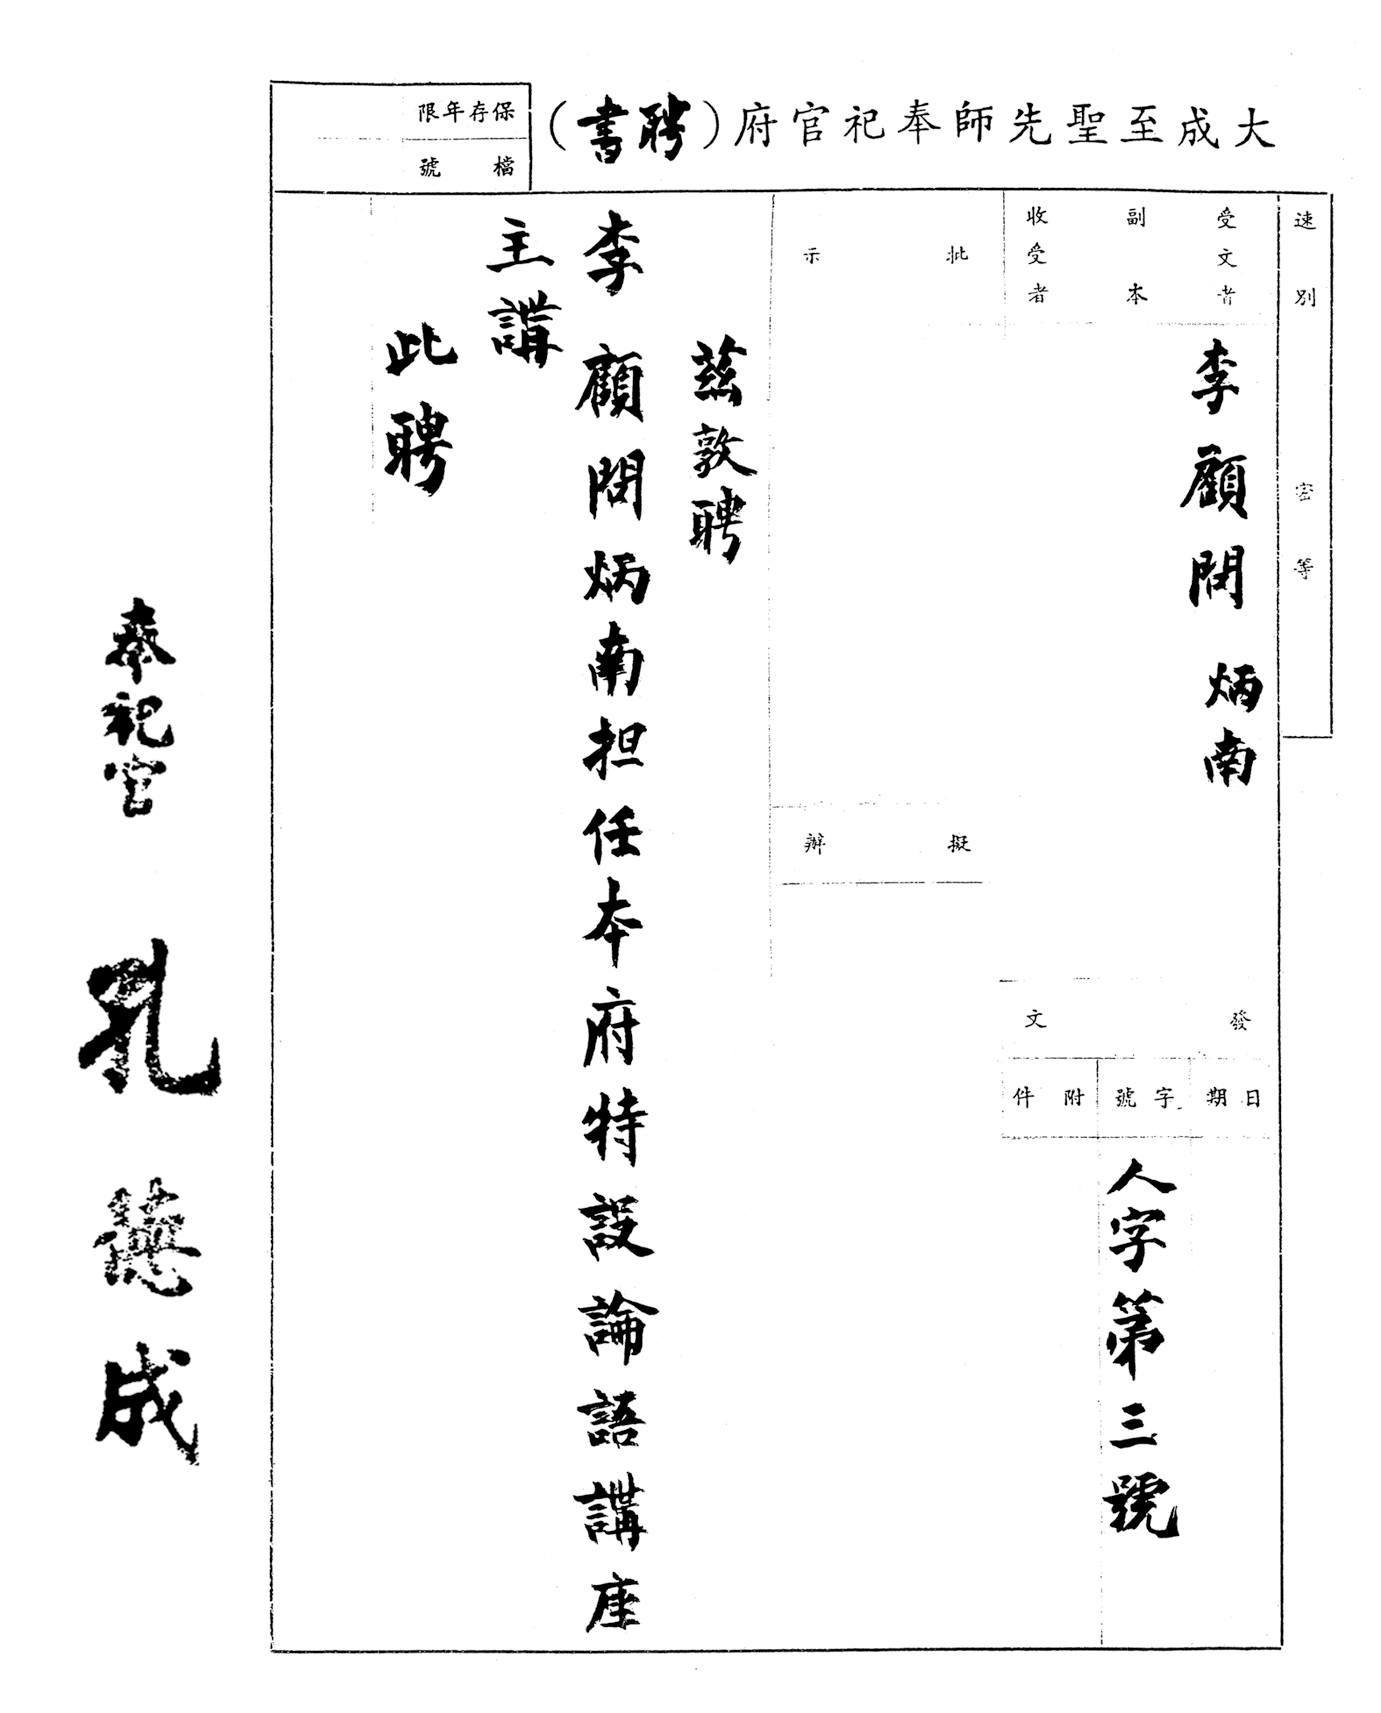 大成至聖先師奉祀官府(聘書)
保存年限
檔號
速別
密等
受文者
李顧問 炳南
副本
收受者
發文
日期
字號
人字第三號
附件
批示
擬辦
茲敦聘
李顧問炳南担任本府特設論語講座
主講
此聘
奉祀官 孔德成